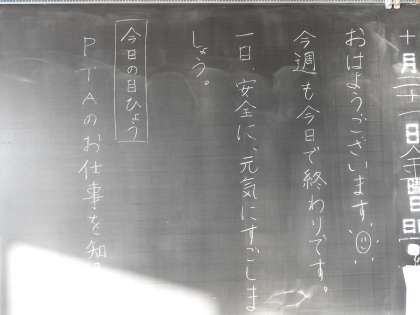 十月二十一日金曜日
おはようございます
今週も今日で終わりです。
一日、安全に、元気にすごしま
しょう。
今日の目ひょう
PTAのお仕事を知